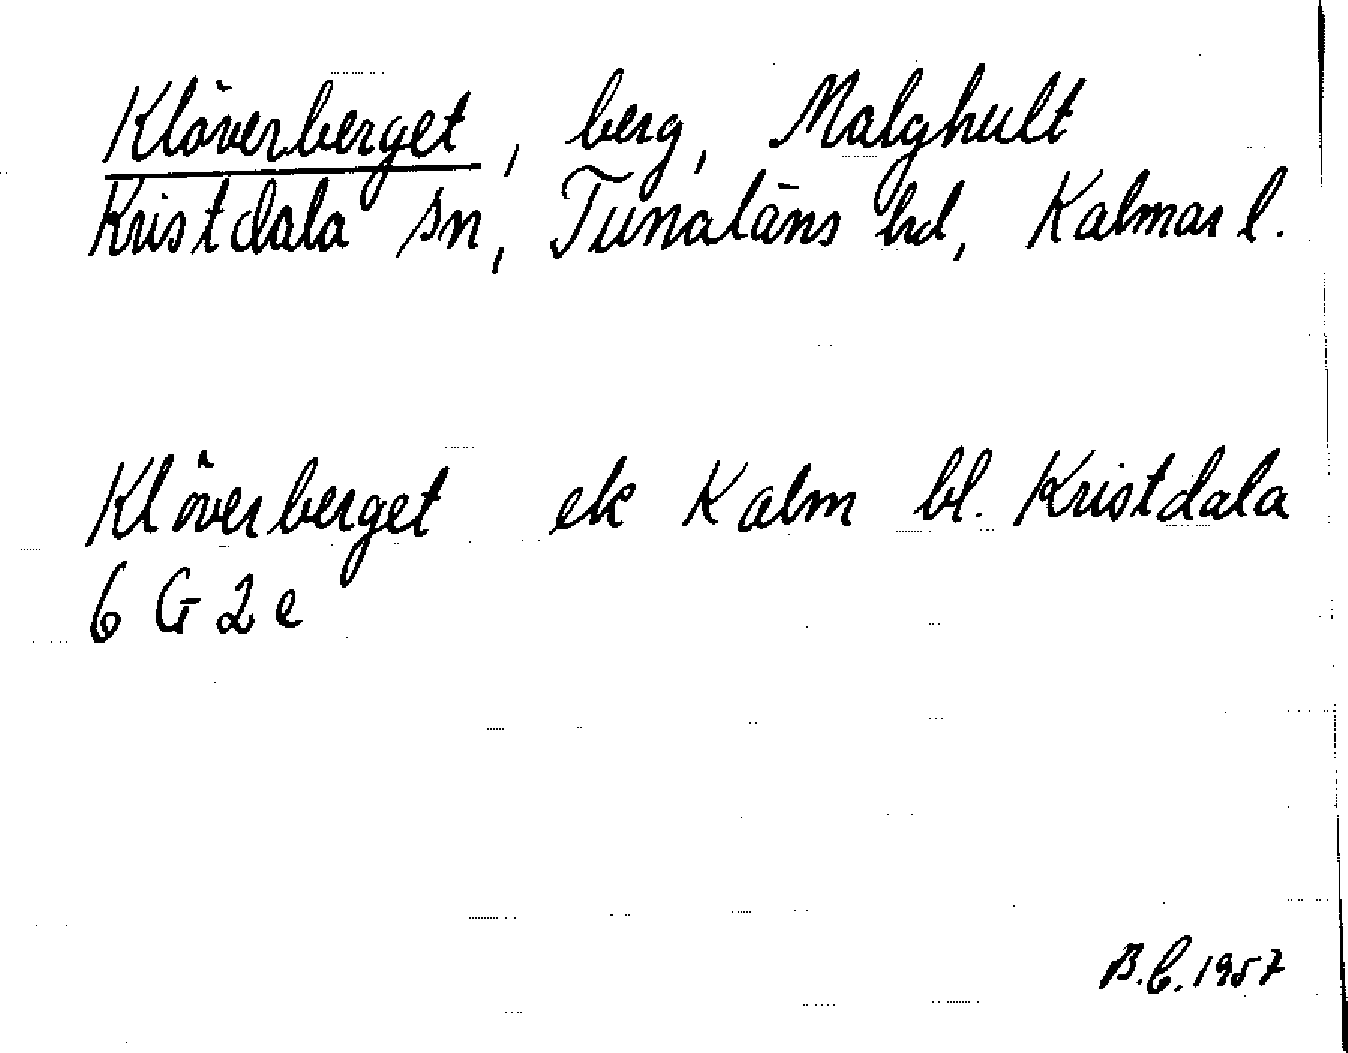 Klöverberget, berg, Malghult
Kristdala sn, Tunaläns hd, Kalmar l.
Klöverberget ek Kalm bl. Kristdala
6 G 2 e
B.C. 1957